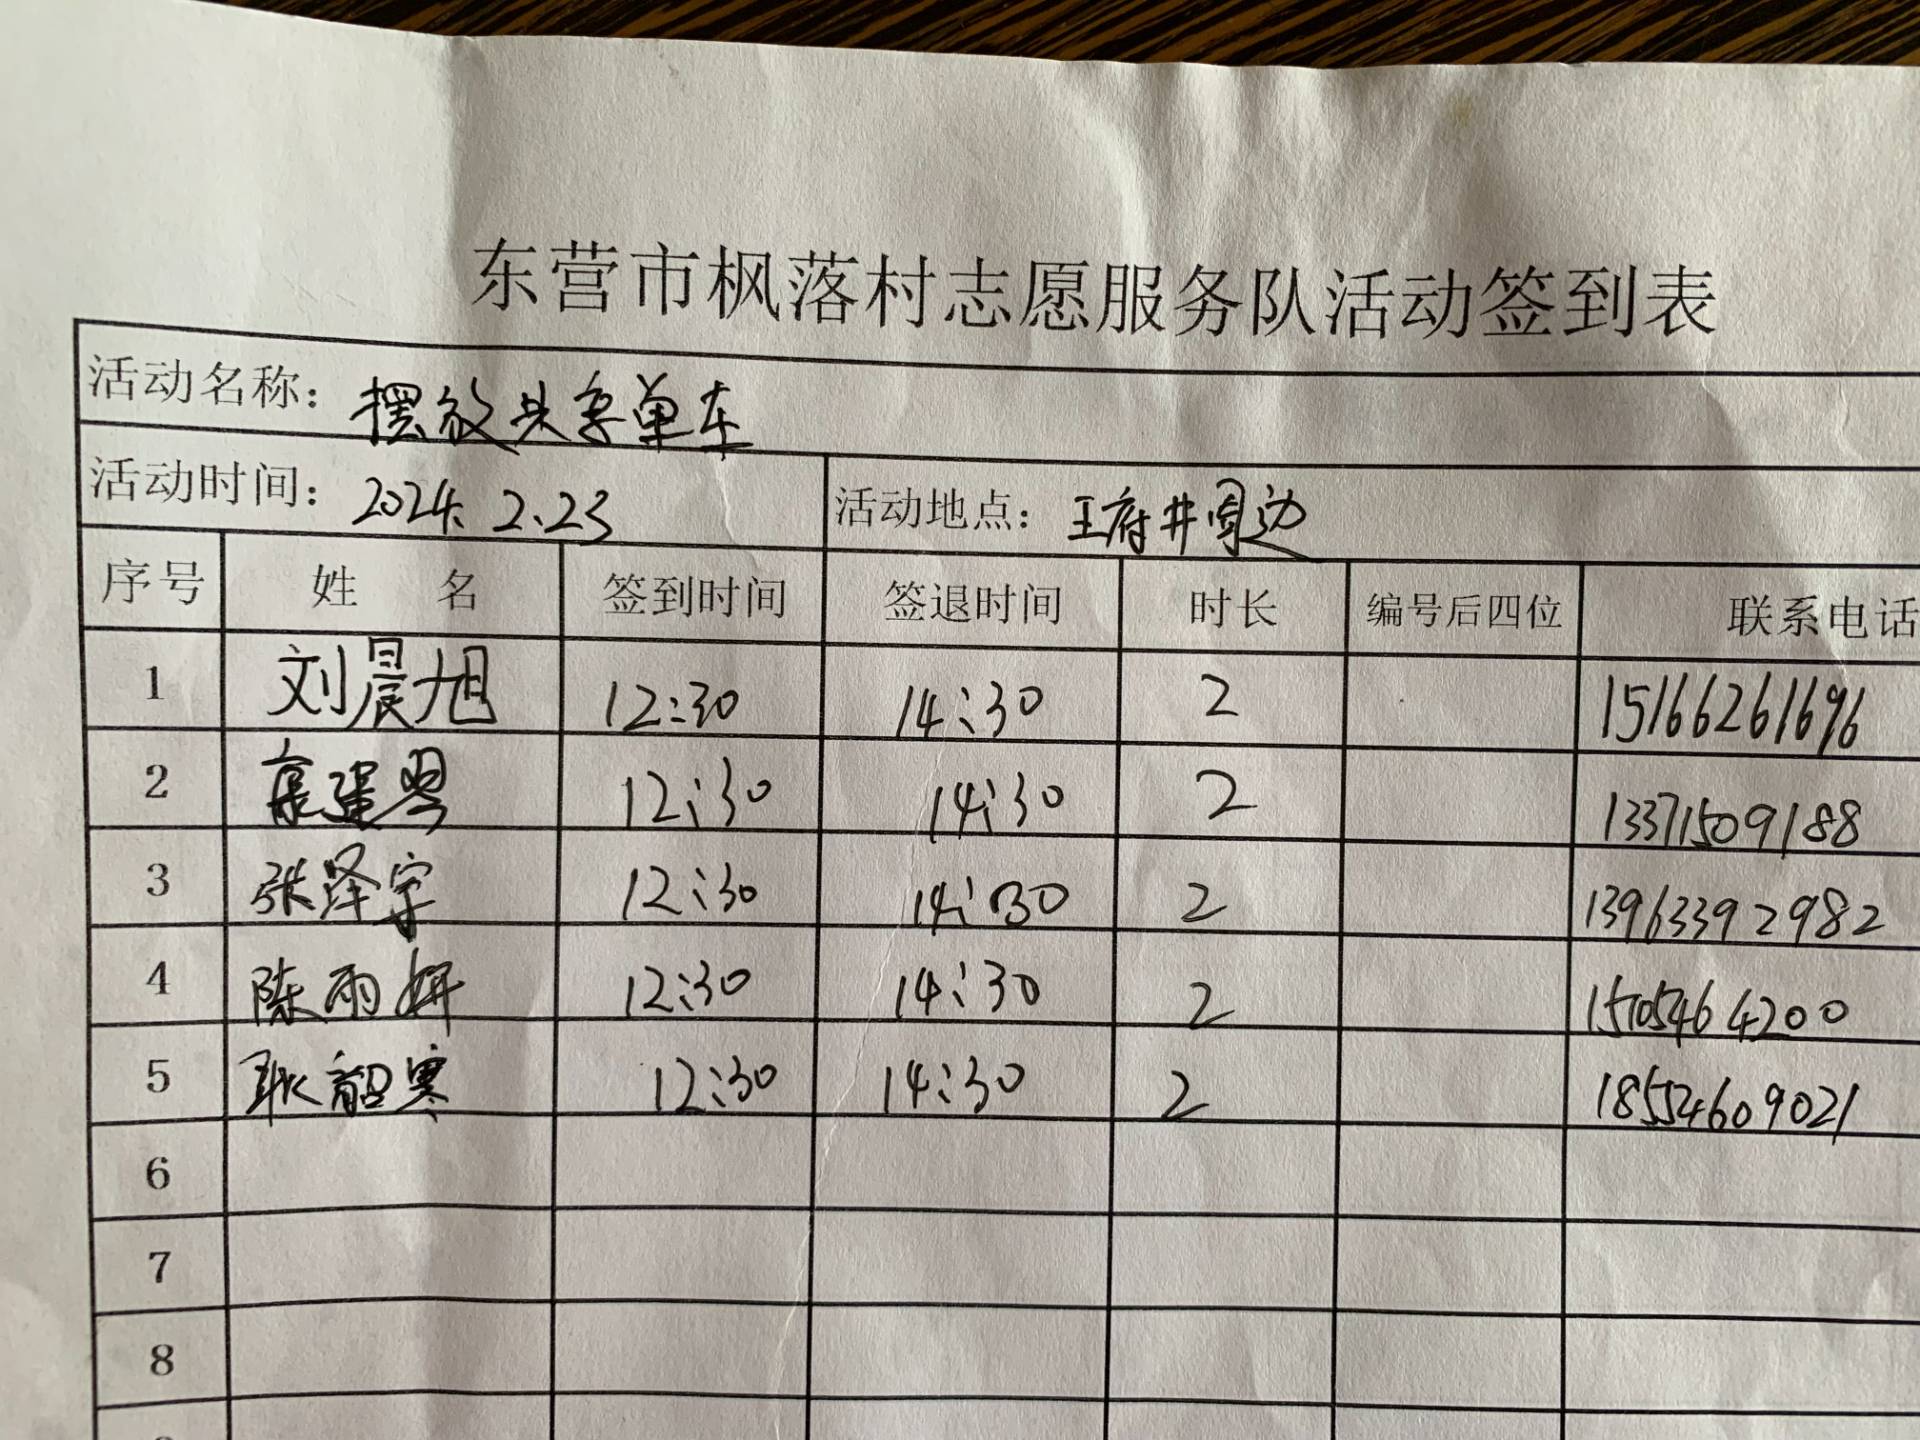 东营市枫落村志愿服务队活动签到表
活动名称：摆放共享单车
活动时间：2024.2.23 活动地点：王府井周边
序号 姓名 签到时间 签退时间 时长 编号后四位 联系电话
1 刘晨旭 12:30 14:30 2 15166261696
2 12:30 14:30 2 13371509188
3 张泽宇 12:30 14:30 2 13963392982
4 陈雨妍 12:30 14:30 2 15105464200
5 耿韶寒 12:30 14:30 2 18554609021
6
7
8